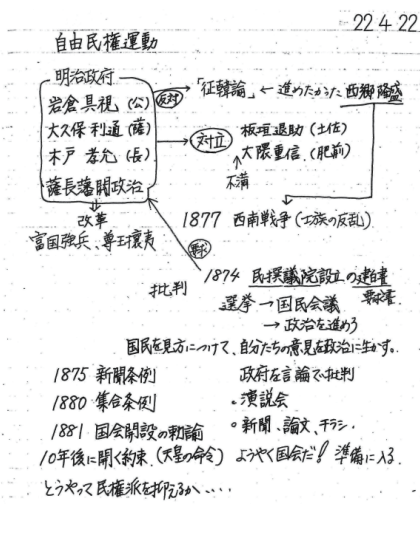 22 4 22
自由民権運動
明治政府
岩倉具視(公)
大久保利通(薩)
木戸孝允(長)
薩長藩閥政治
反対
「征韓論」←進めたかった西郷隆盛
対立
板垣退助(土佐)
大隈重信(肥前)
不満
改革
富国強兵、尊王攘夷
1877 西南戦争(士族の反乱)
要求
1874 民撰議院設立の建白書
要求書
批判
選挙→国民会議
→政治を進めろ
国民を見方につけて、自分たちの意見を政治に生かす。
1875 新聞条例
政府を言論で批判
1880 集合条例
・演説会
1881 国会開設の勅諭
・新聞、論文、チラシ
10年後に開く約束.(天皇の命令)
ようやく国会だ! 準備に入る.
どうやって民権派を抑えるか・・・・